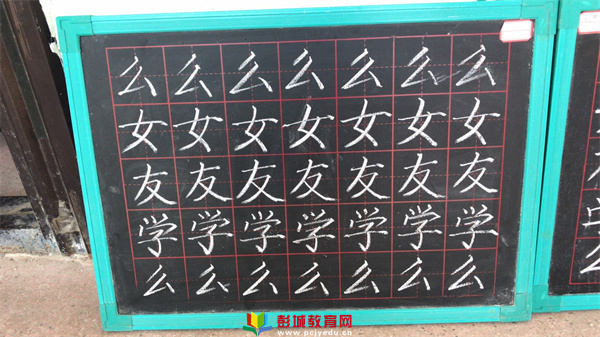 么么么么么么么
女女女女女女女
友友友友友友友
学学学学学学学
么么么么么么么
彭城教育网
www.pcjyedu.cn